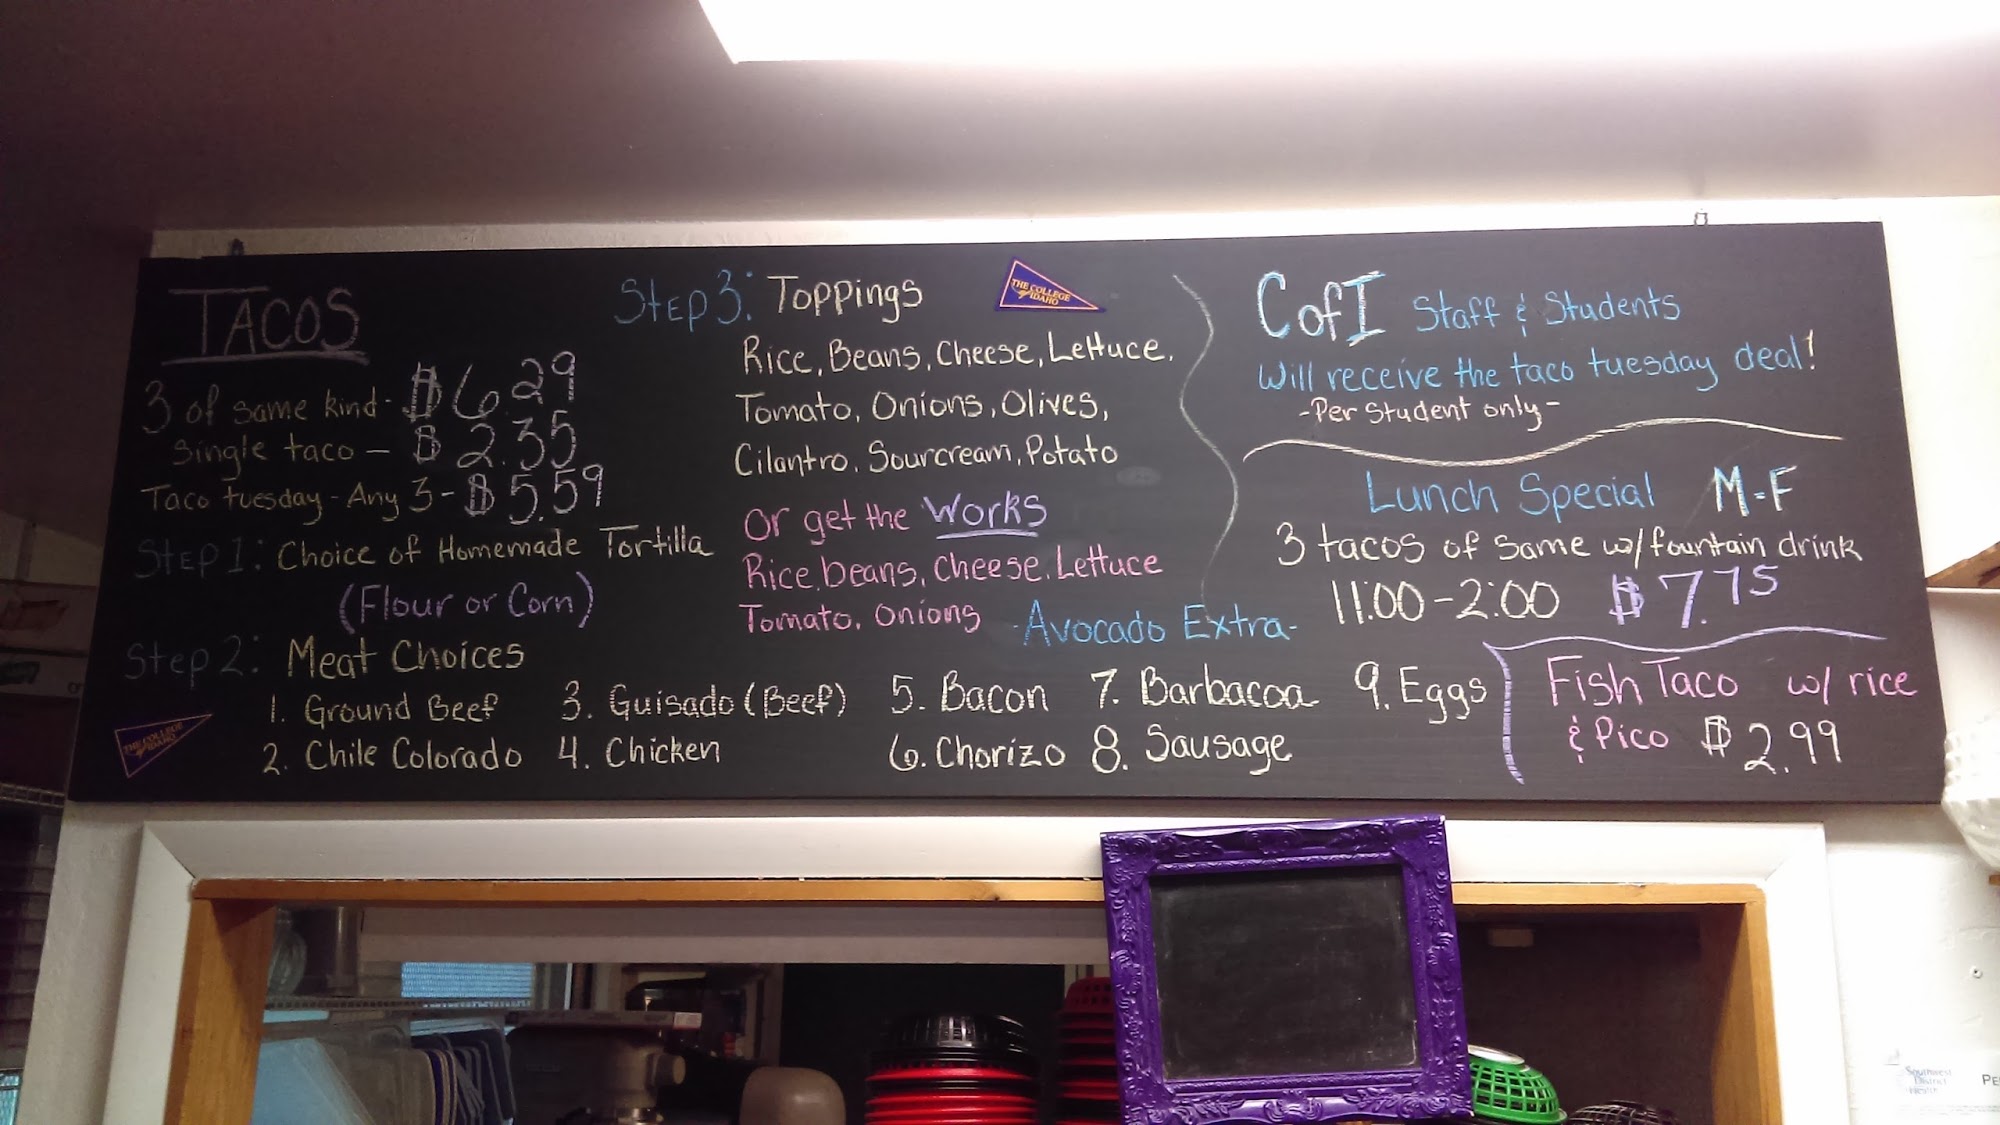 TACOS
3 of same kind - $6.29
Single taco - $2.35
Taco tuesday - Any 3 - $5.59
Step 1: Choice of Homemade Tortilla
(Flour or Corn)
Step 2: Meat Choices
1. Ground Beef
2. Chile Colorado
3. Guisado (Beef)
4. Chicken
5. Bacon
6. Chorizo
7. Barbacoa
8. Sausage
9. Eggs
THE COLLEGE
of IDAHO
Step 3: Toppings
THE COLLEGE
of IDAHO
Rice, Beans, Cheese, Lettuce,
Tomato, Onions, Olives,
Cilantro, Sourcream, Potato
Or get the Works
Rice, beans, Cheese, Lettuce
Tomato, Onions
-Avocado Extra-
CofI Staff & Students
Will receive the taco tuesday deal!
-Per Student only-
Lunch Special M-F
3 tacos of same w/fountain drink
11:00-2:00 $7.75
Fish Taco w/ rice
& Pico $2.99
Southwest
District
Health